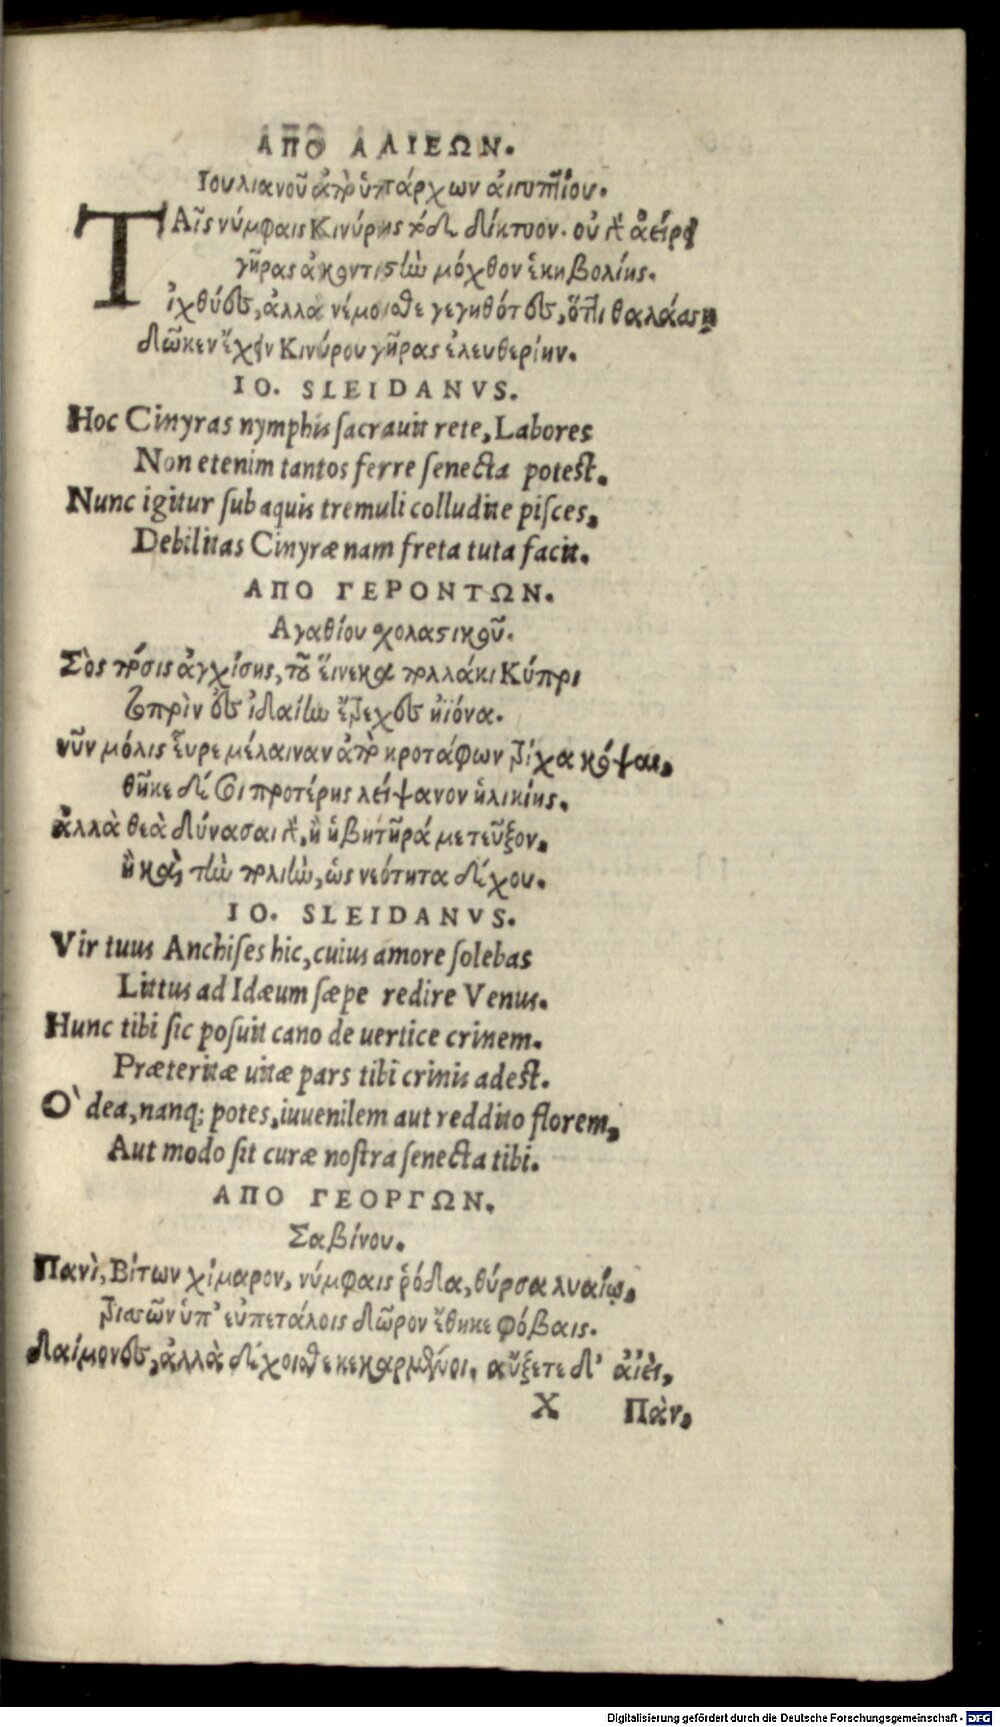 ΑΠΟ ΑΛΙΕΩΝ.
Ιουλιανοῦ ἀπὸ ὑπάρχων ἀιγυπτίου.
ΤΑῖς νύμφαις Κινύρης τόδε δίκτυον. οὐ γὰρ ἀείρει
γῆρας ἀκοντιστὼ μόχθον ἑκηβολίης.
ἰχθύες, ἀλλὰ νέμοισθε γεγηθότες, ὅττι θαλάσση
δῶκεν ἔχειν Κινύρου γῆρας ἐλευθερίην.
IO. SLEIDANVS.
Hoc Cinyras nymphis ſacrauit rete, Labores
Non etenim tantos ferre ſenecta potest.
Nunc igitur ſub aquis tremuli colludite piſces,
Debilitas Cinyræ nam freta tuta facit.
ΑΠΟ ΓΕΡΟΝΤΩΝ.
Αγαθίου σχολαστικοῦ.
Σὸς πόσις ἀγχίσης, τοῦ ἕινεκα πολλάκι Κύπρι
τοπρὶν ἐς ἰδαίην ἔτρεχες ἠϊόνα.
νῦν μόλις εὗρε μέλαιναν ἀπὸ κροτάφων τρίχα κόψαι,
θῆκε δέ σοι προτέρης λείψανον ἡλικίης.
ἀλλὰ θεὰ δύνασαι γὰρ, ἢ ἡβητῆρά με τεῦξον,
ἢ καὶ τὴν πολιὴν, ὡς νεότητα δέχου.
IO. SLEIDANVS.
Vir tuus Anchiſes hic, cuius amore ſolebas
Littus ad Idæum ſæpe redire Venus.
Hunc tibi ſic poſuit cano de uertice crinem.
Præteritæ uitæ pars tibi crinis adest.
O` dea, nanq; potes, iuuenilem aut reddito florem,
Aut modo ſit curæ noſtra ſenecta tibi.
ΑΠΟ ΓΕΟΡΓΩΝ.
Σαβίνου.
Πανὶ, Βίτων χίμαρον, νύμφαις ῥόδα, θύρσα λυαίῳ,
τρισσῶν ὑπ' εὐπετάλοις δῶρον ἔθηκε φόβαις.
δαίμονες, ἀλλὰ δέχοισθε κεχαρμένοι. αὔξετε δ' ἀιὲι,
X Πὰν,
Digitalisierung gefördert durch die Deutsche Forschungsgemeinschaft - DFG